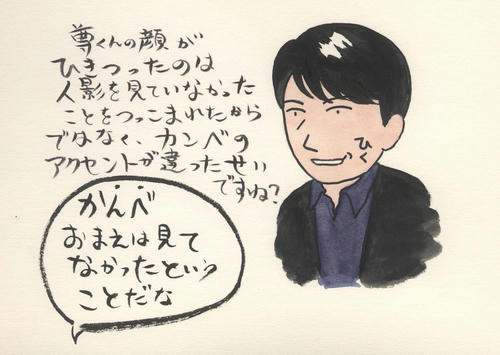 尊くんの顔が
ひきつったのは
人影を見ていなかった
ことをつっこまれたから
ではなく、カンベの
アクセントが違ったせい
ですね?
ひく
かんべ
おまえは見て
なかったという
ことだな